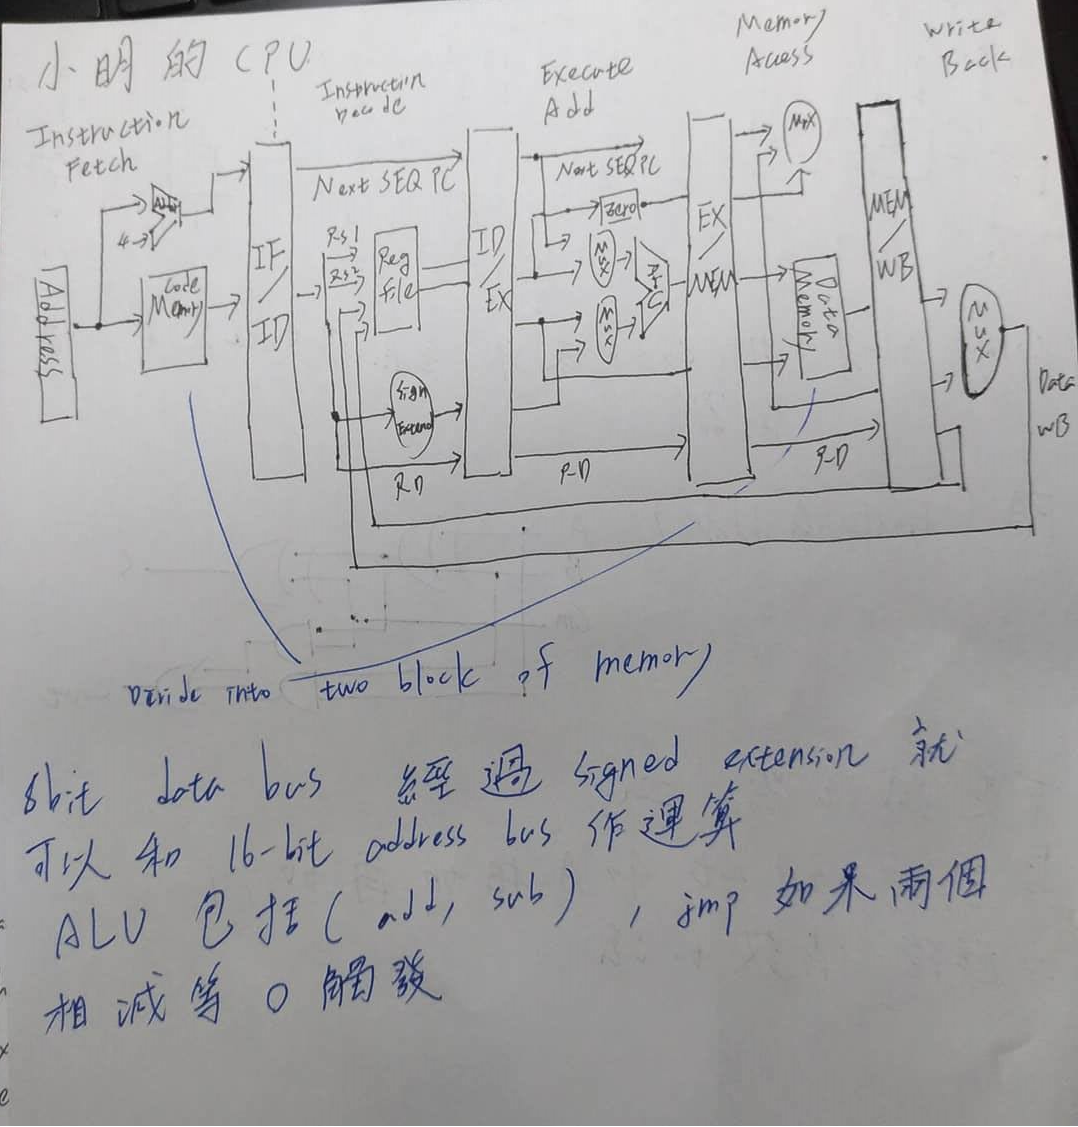 小明的 CPU
Instruction
Fetch
Instruction
Decode
Execute
Add
Memory
Acess
Write
Back
Address
4
Code
Memory
IF/ID
Next SEQ PC
Rs1
Rs2
Reg
File
Sign
Extend
RD
ID/EX
Next SEQ PC
Zero
Mux
Mux
RD
EX/MEM
Mux
Data
Memory
RD
MEM/WB
Mux
Data
WB
Divide into two block of memory
8bit data bus 經過 signed extension 就
可以和 16-bit address bus 作運算
ALU 包括(add, sub), jmp 如果兩個
相減等 0 觸發